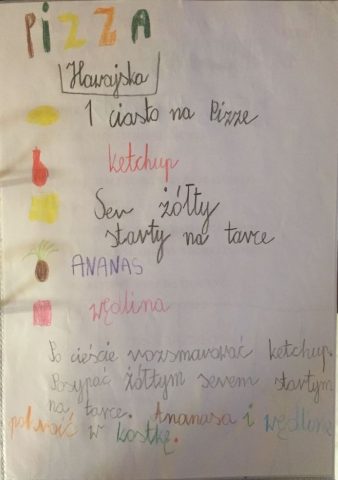 PIZZA
Hawajska
1 ciasto na Pizze
ketchup
Ser żółty
starty na tarce
ANANAS
wędlina
Po cieście rozsmarować ketchup.
Posypać żółtym serem startym
na tarce. Ananasa i wędlinę
pokroić w kostkę.